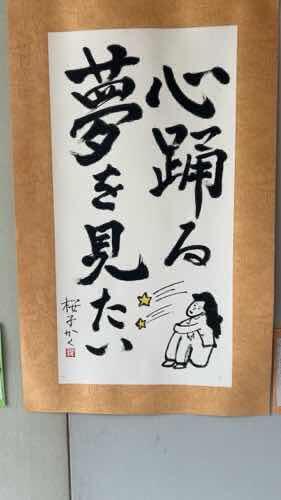 心踊る
夢を見たい
桜子かく